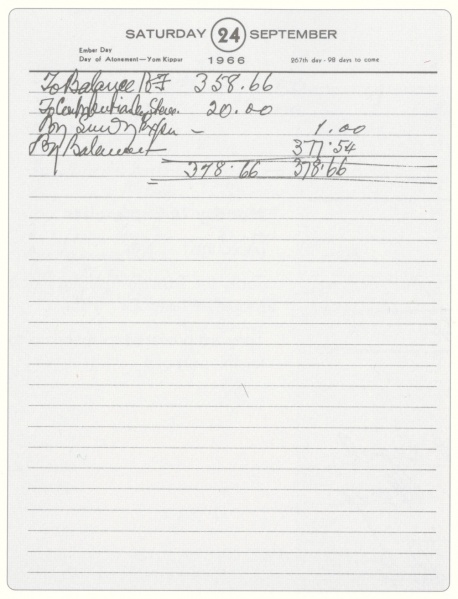 SATURDAY 24 SEPTEMBER
Ember Day
Day of Atonement—Yom Kippur 1966 267th day - 98 days to come
To Balance B/F 358.66
To 20.00
By Sundry Expen — 1.00
By Balance 377.54
378.66 378.66